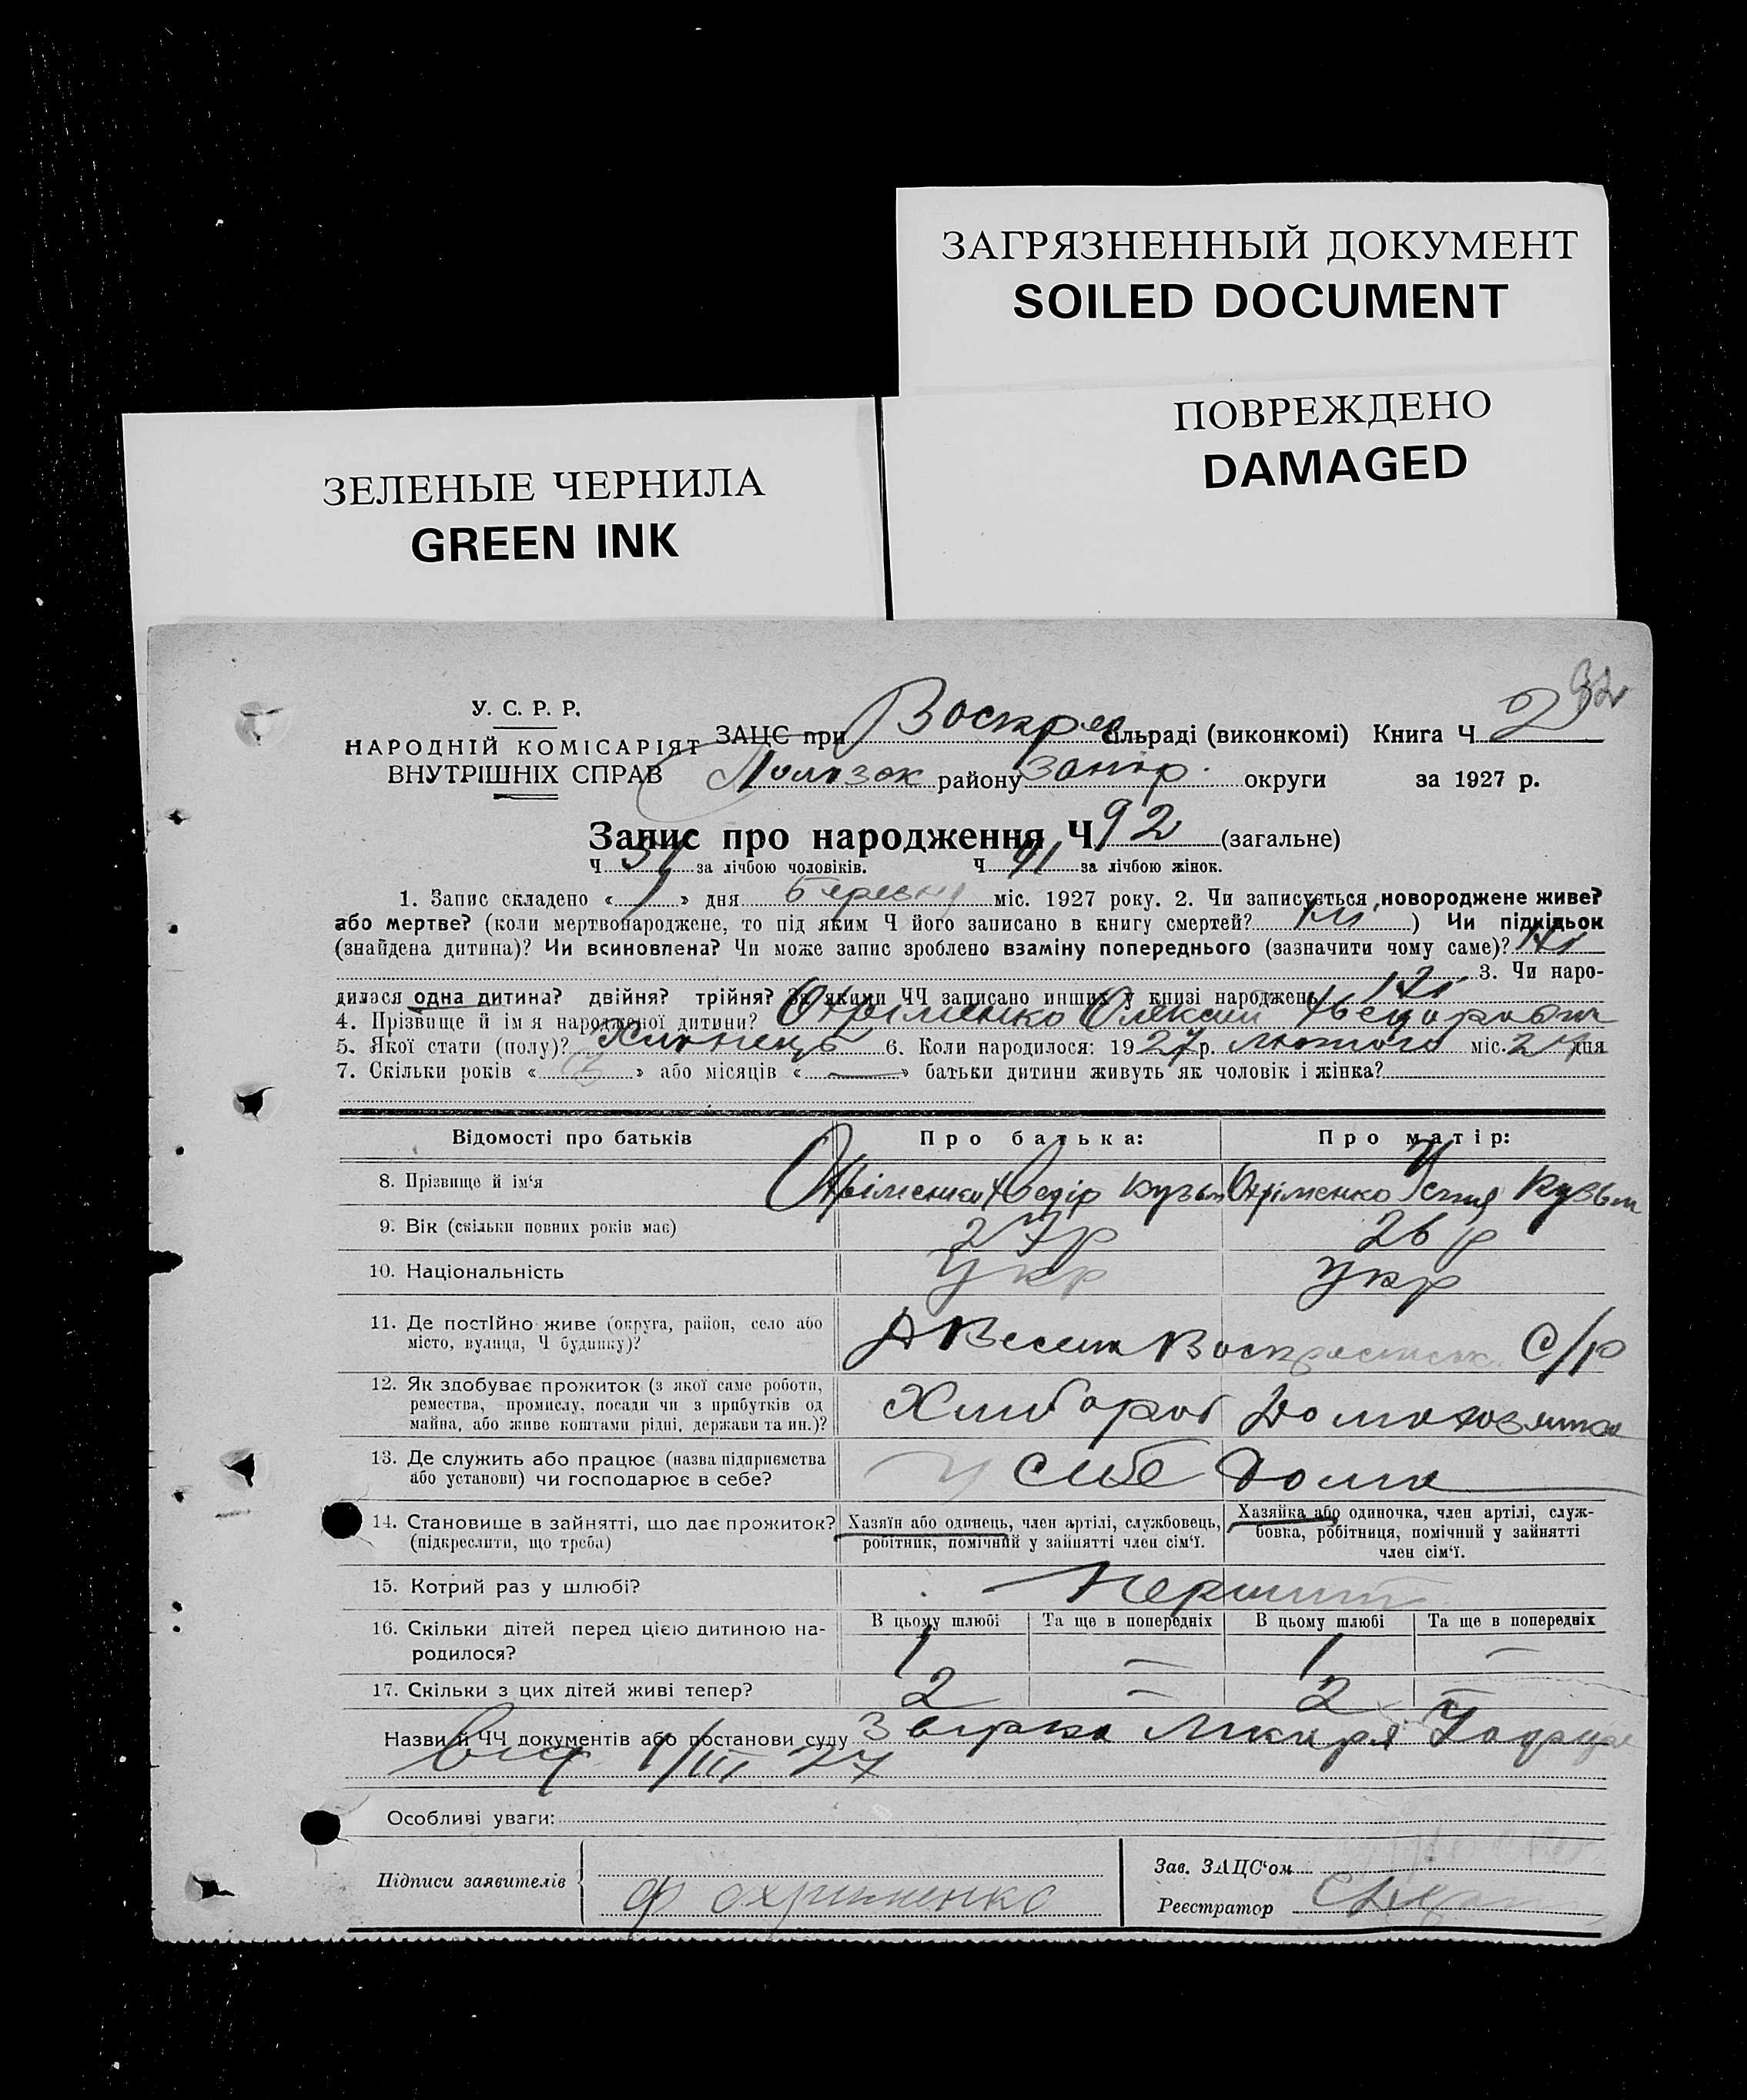 ЗАГРЯЗНЕННЫЙ ДОКУМЕНТ
SOILED DOCUMENT
ПОВРЕЖДЕНО
DAMAGED
ЗЕЛЕНЫЕ ЧЕРНИЛА
GREEN INK
32
У. С. Р. Р.
НАРОДНІЙ КОМІСАРІЯТ
ВНУТРІШНІХ СПРАВ
ЗАЦС при Воскрес сільраді (виконкомі) Книга Ч 2
району Запор. округи за 1927 р.
Запис про народження Ч 92 (загальне)
Ч 51 за лічбою чоловіків. Ч 41 за лічбою жінок.
1. Запис складено « 1 » дня березня міс. 1927 року. 2. Чи записується новороджене живе?
або мертве? (коли мертвонароджене, то під яким Ч його записано в книгу смертей? ні ) Чи підкідьок
(знайдена дитина)? Чи всиновлена? Чи може запис зроблено взаміну попереднього (зазначити чому саме)? Ні
3. Чи наро-
дилася одна дитина? двійня? трійня? За якими ЧЧ записано инших у книзі народжень Ні
4. Прізвище й ім'я народженої дитини? Охріменко Олексій Федорович
5. Якої стати (полу)? Хлопець 6. Коли народилося: 1927 р. лютого міс. 24 дня
7. Скільки років « 3 » або місяців « — » батьки дитини живуть як чоловік і жінка?
Відомості про батьків Про батька: Про матір:
8. Прізвище й ім'я Охріменко Федір Кузьм Охріменко Устия Кузьм
9. Вік (скільки повних років має) 27 р 26 р
10. Національність Укр укр
11. Де постійно живе (округа, район, село або
місто, вулиця, Ч будинку)? С/р
12. Як здобуває прожиток (з якої саме роботи,
ремества, промислу, посади чи з прибутків од
майна, або живе коштами рідні, держави та ин.)? Хлибороб Домохозяйка
13. Де служить або працює (назва підприємства
або установи) чи господарює в себе? У себе дома
14. Становище в зайнятті, що дає прожиток?
(підкреслити, що треба)
Хазяїн або одинець, член артілі, службовець,
робітник, помічний у зайнятті член сім'ї.
Хазяйка або одиночка, член артілі, служ-
бовка, робітниця, помічний у зайнятті
член сім'ї.
15. Котрий раз у шлюбі? Перший
В цьому шлюбі Та ще в попередніх В цьому шлюбі Та ще в попередніх
16. Скільки дітей перед цією дитиною на-
родилося? 1 — 1 —
17. Скільки з цих дітей живі тепер? 2 — 2 —
Назви й ЧЧ документів або постанови суду
від 1/III 27
Особливі уваги:
Підписи заявителів Ф Охрименко
Зав. ЗАЦС'ом
Реєстратор